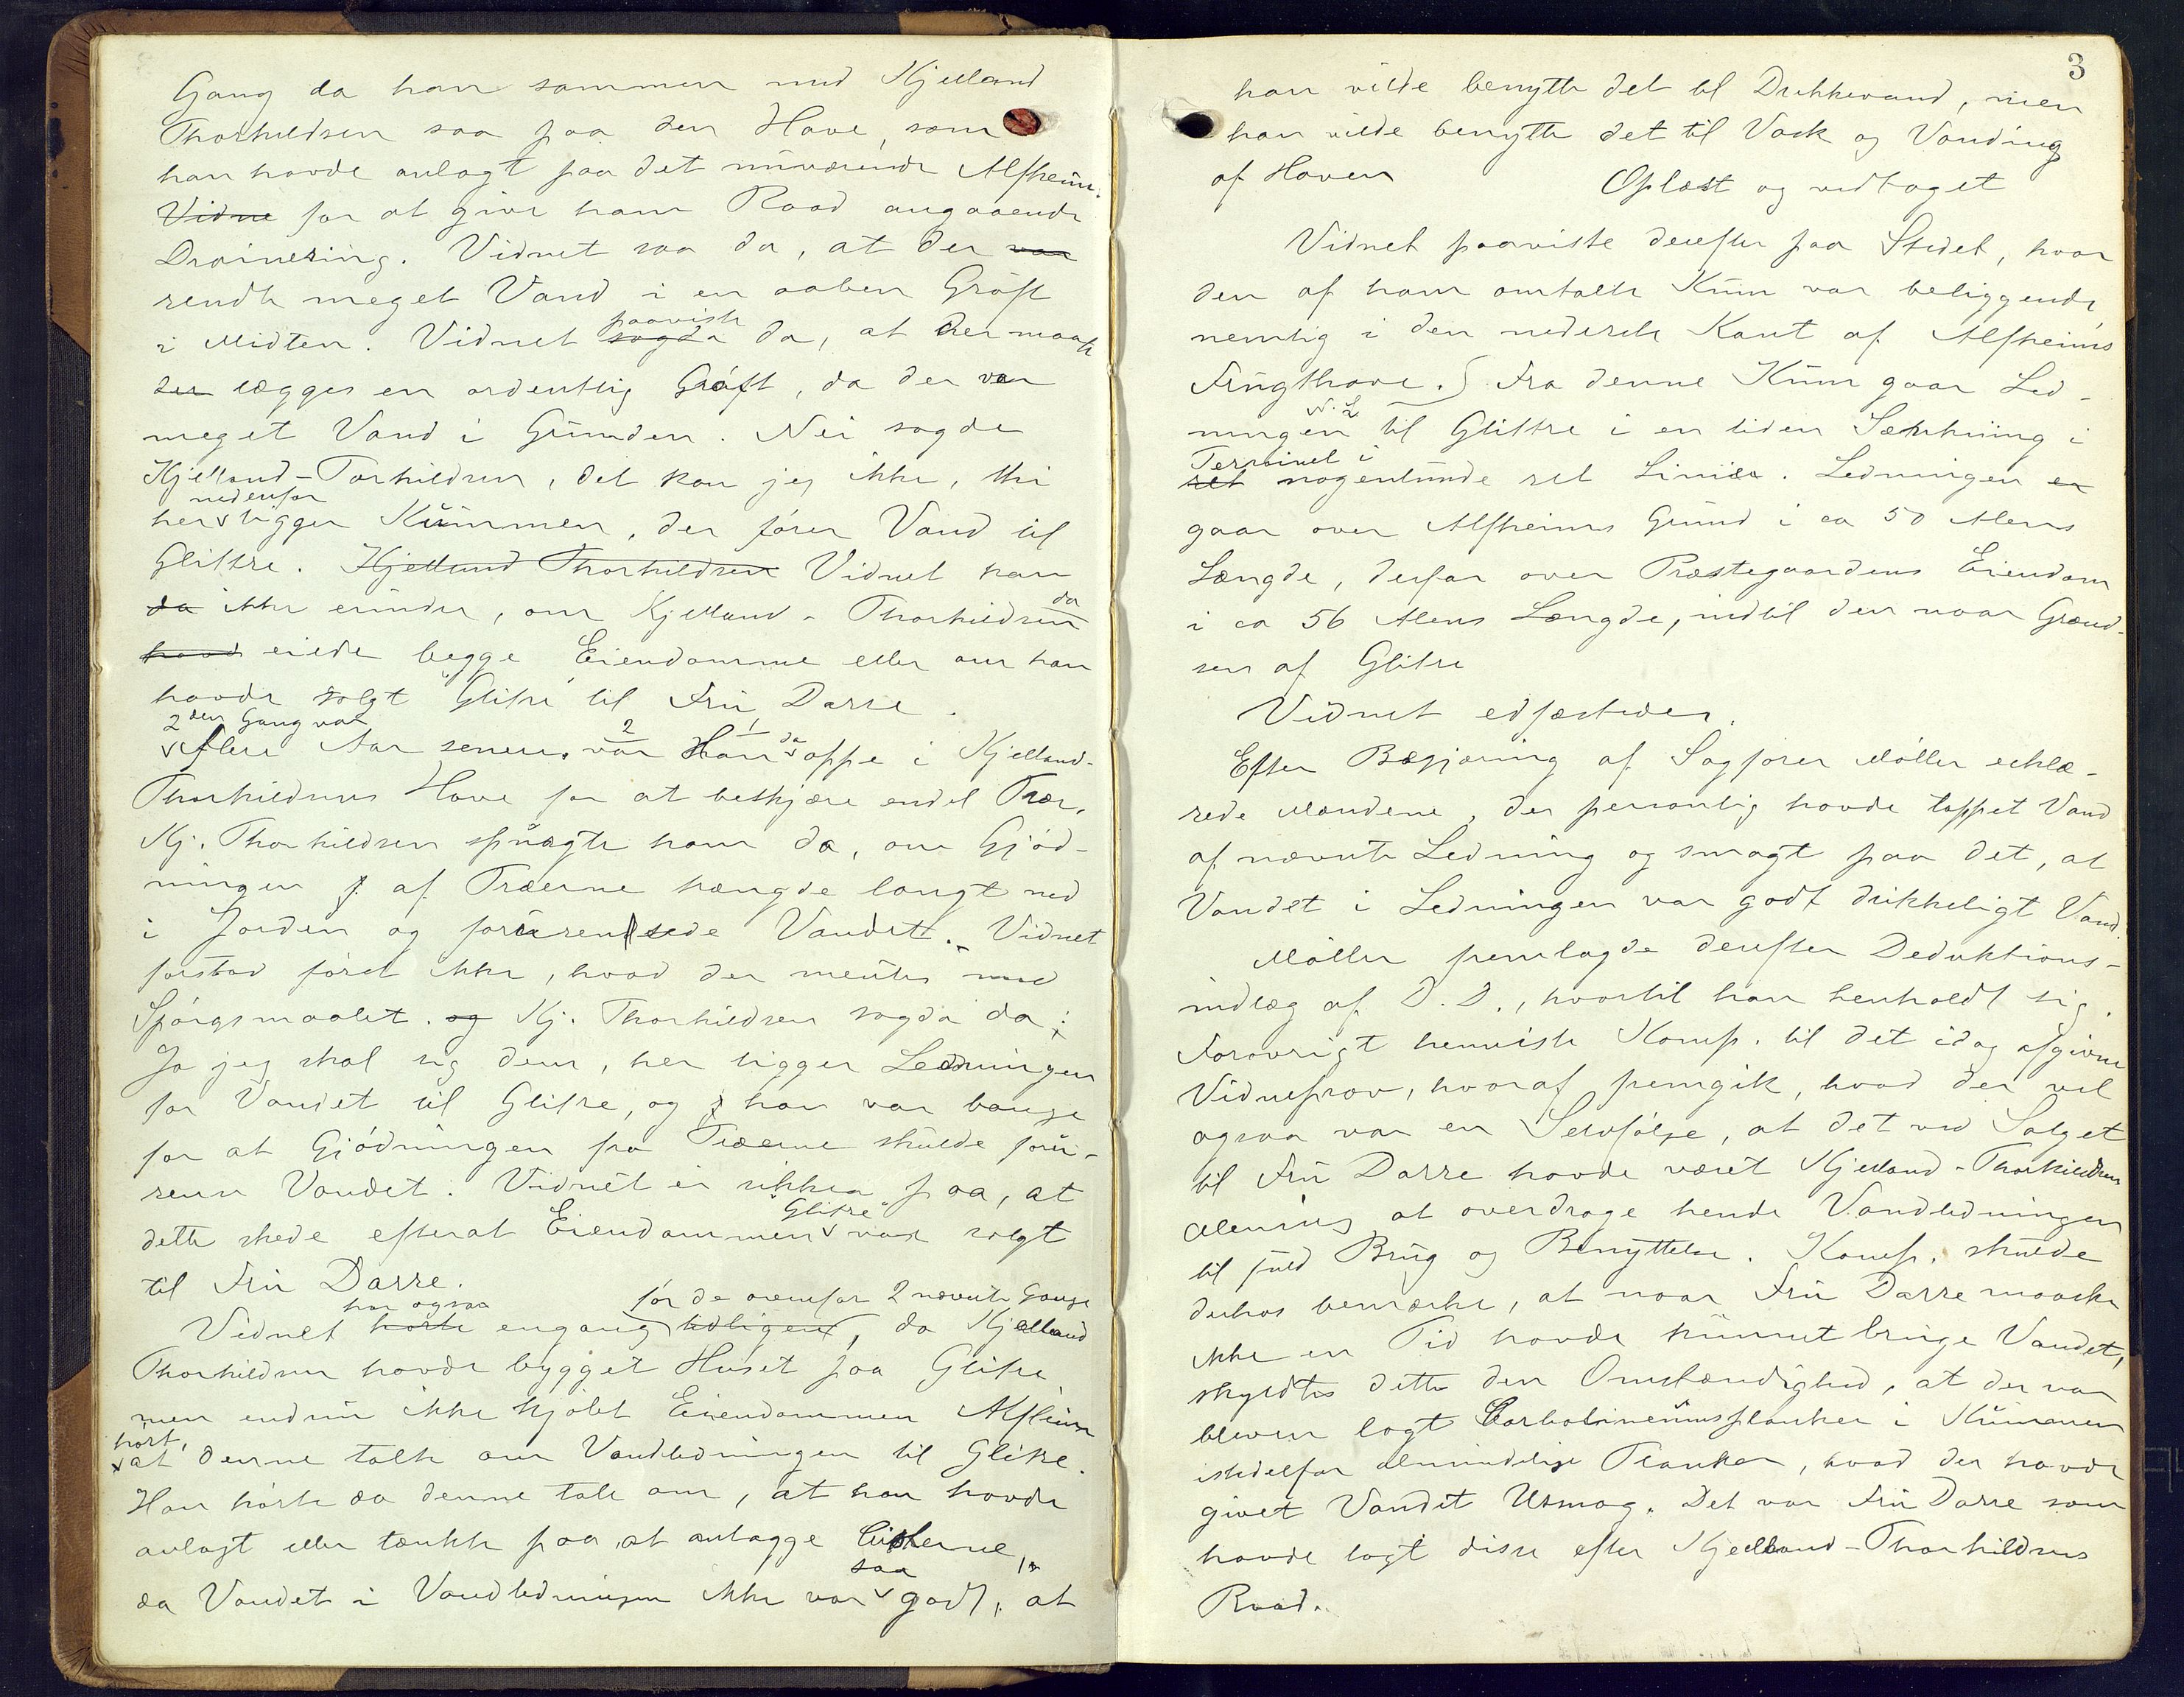 Gang da han sammen med Kjelland
Thorkildsen saa paa den Have, som
han havde anlagt paa det nuværende Alfheim.
Vidne for at give ham Raad angaaende
Drainering. Vidnet saa da, at der var
rendte meget Vand i en aaben Grøft
i Midten. Vidnet sagde da, at der maatte
paaviste
der lægges en ordentlig Grøft, da der var
meget Vand i Grunden. Nei sagde
Kjelland-Torkildsen, det kan jeg ikke, thi
nedenfor
her ligger Kummen, der fører Vand til
Glittre. Kjelland Thorkildsen Vidnet kan
da ikke erindre, om Kjelland-Thorkildsen da
havd eiede begge Eiendomme eller om han
havde solgt "Glitre" til Fru Darre.
2den Gang var
Flere Aar senere var Han da oppe i Kjelland-
Thorkildsens Have for at beskjære endel Trær.
Kj. Thorkildsen spurgte ham da, om Gjød-
ningen f af Træerne trængde langt ned
i Jorden og forurensede Vandet. Vidnet
forstod først ikke, hvad der mentes med
Spørgsmaalet. og Kj. Thorkildsen sagde da:
Ja jeg skal sig dem, her ligger Ledningen
for Vandet til Glitre, og han var bange
for at Gjødningen fra Træerne skulde foru-
rense Vandet. Vidnet er sikker paa, at
dette skede efterat Eiendommen "Glitre" var solgt
til Fru Darre.
har ogsaa før de ovenfor 2 nævnte Gange
Vidnet hørte engang tidligere, da Kjelland
Thorkildsen havde bygget Huset paa Glitre
men endnu ikke kjøbt Eiendommen Alfheim
hørt,
at denne talte om Vandledningen til Glitre.
Han hørte da denne tale om, at han havde
anlagt eller tænkte paa at anlægge Cisterne,
da Vandet i Vandledningen ikke var saa godt, at
3
han vilde benytte det til Drikkevand, men
han vilde benytte det til Vask og Vanding
af Haven
Oplæst og vedtaget
Vidnet paaviste derefter paa Stedet, hvor
den af ham omtalte Kum var beliggende,
nemlig i den nederste Kant af Alfheims
Frugthave. Fra denne Kum gaar Led-
ningen til Glittre i en liden Sænkning i
Terrainet i
ret nogenlunde ret Linie. Ledningen er
gaar over Alfheims Grund i ca 50 Alens
Længde, derfor over Præstegaardens Eiendom
i ca 56 Alens Længde, indtil den naar Grænd-
sen af Glitre
Vidnet edfæstedes.
Efter Begjæring af Sagfører Møller erklæ-
rede Mændene, der personlig havde tappet Vand
af nævnte Ledning og smagt paa det, at
Vandet i Ledningen var godt drikkeligt Vand.
Møller fremlagde derefter Deduktions-
indlæg af D. D., hvortil han henholdt sig.
Forøvrigt henviste Komp. til det idag afgivne
Vidneprov, hvoraf fremgik, hvad der vel
ogsaa var en Selvfølge, at det ved Salget
til Fru Darre havde været Kjelland-Thorkildsens
Mening at overdrage hende Vandledningen
til fuld Brug og Benyttelse. Komp. skulde
derhos bemærke, at naar Fru Darre maaske
ikke en Tid havde kunnet bruge Vandet,
skyldtes dette den Omstændighed, at der var
bleven lagt Carbolineumsplanker i Kummen
istedetfor almindelige Planker, hvad der havde
givet Vandet Usmag. Det var Fru Darre som
havde lagt disse efter Kjelland-Thorkildsens
Raad.